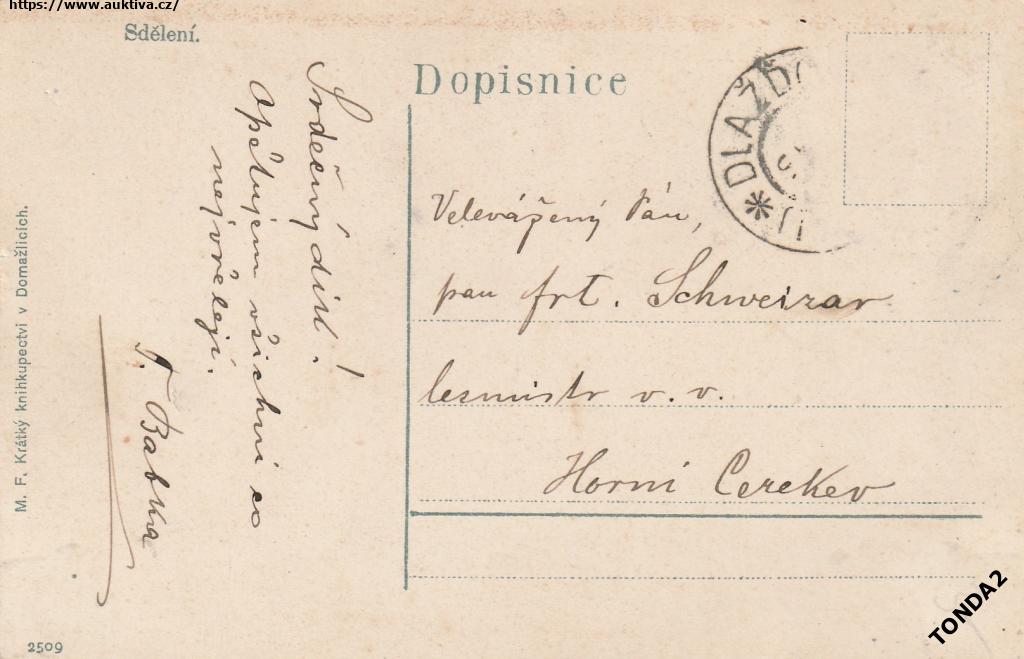 https://www.auktiva.cz/
Sdělení.
Dopisnice
DLAŽĎ
Srdečný dík!
Opětujem všichni co
nejvřeleji.
T. Babka
Velevážený Pán,
pan frt. Schweizar
lesmistr v. v.
Horní Cerekev
M. F. Krátký knihkupectví v Domažlicích.
2509
TONDA2